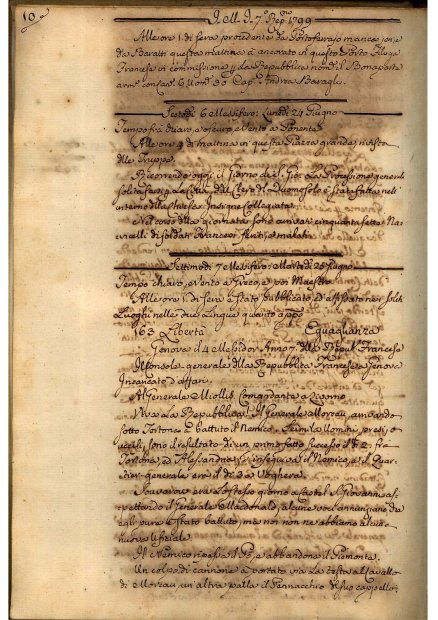 10
1799
Alle ore 1. di sera proveniente da Portoferrajo
da Baratti questa mattina à ancorato in questo Porto
Francese in commissione la Repubblica il Bonaparte
6 Uom: 30 Cap. Andrea
Sestodì 6 Messifero: Lunedì 24 Giugno
Tempo frà chiaro, e oscuro, e Vento a Ponente
Alle ore 9 di mattina in questa Piazza grande rivista
delle Truppe.
Ricorrendo oggi il Giorno di S. Gio: la Processione general
solita farsi è stata fatta nell'
interno della stessa Insigne Collegiata.
Nel corso della giornata sono arrivati cinquanta sette Na-
vicelli di soldati Francesi feriti, e malati
Settimodì 7 Messifero: Martedì 25 Giugno
Tempo chiaro, e Vento a Greco, e poi Maestro
Alle ore 1. di sera è stato pubblicato, ed affissato nei soliti
Luoghi nelle due Lingue quanto appo
163 Libertà Eguaglianza
Genova il 4 Messidor Anno 7. della Repub. Francese
Il Console generale della Repubblica Francese a Genova
Incaricato d'affari,
Al Generale Miollis Comandante a Livorno
Viva la Repubblica! Il Generale Moreau, arrivando
sotto Tortona à battuto il Nemico. Seimila Uomini, presi, o
uccisi, sono il resultato di un primo fatto successo il dì 2. frà
Tortona, e Alessandria. S'inseguiva il Nemico, e il Quar-
tier generale era il dì 3 a Voghera.
Souvarow era lo stesso giorno a Castel S. Giovanni as-
pettando il Generale Macdonald; alcune voci annunziano che
egli pure è stato battuto; mà noi non ne abbiamo alcuna
nuova Ufiziale
Il Nemico ripassa il Pò, e abbandona il Piemonte.
Un colpo di cannone à portato via la testa al Cavallo
di Moreau, un'altra palla il Pennacchio del suo cappello;